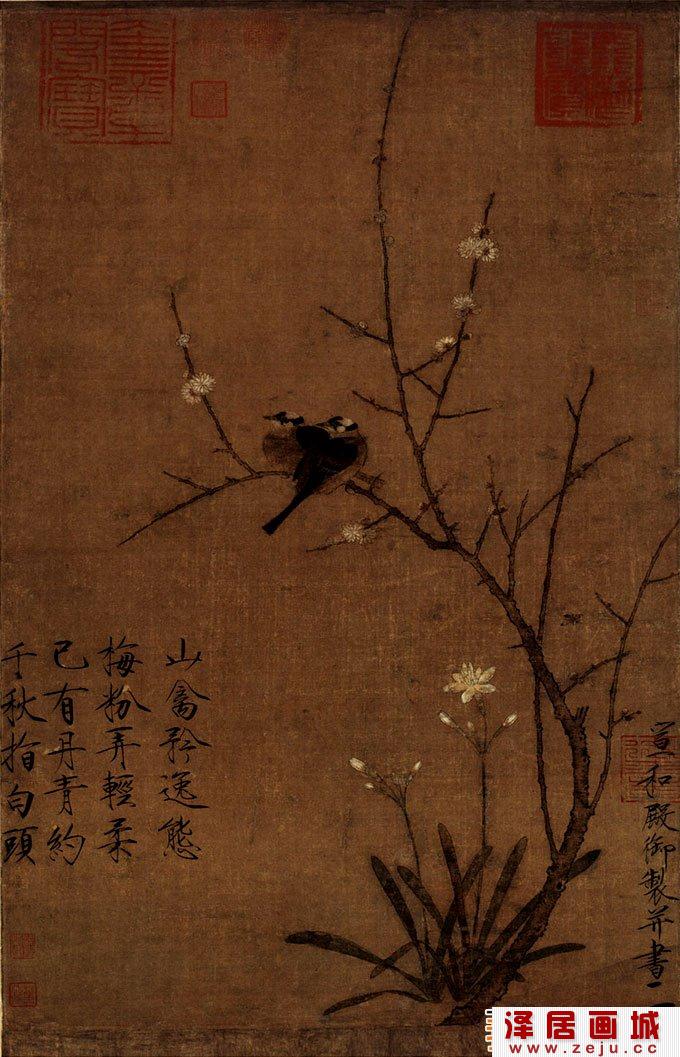 山禽矜逸態
梅粉弄輕柔
已有丹青約
千秋指白頭
宣和殿御製并書
泽居画城
www.zeju.cc